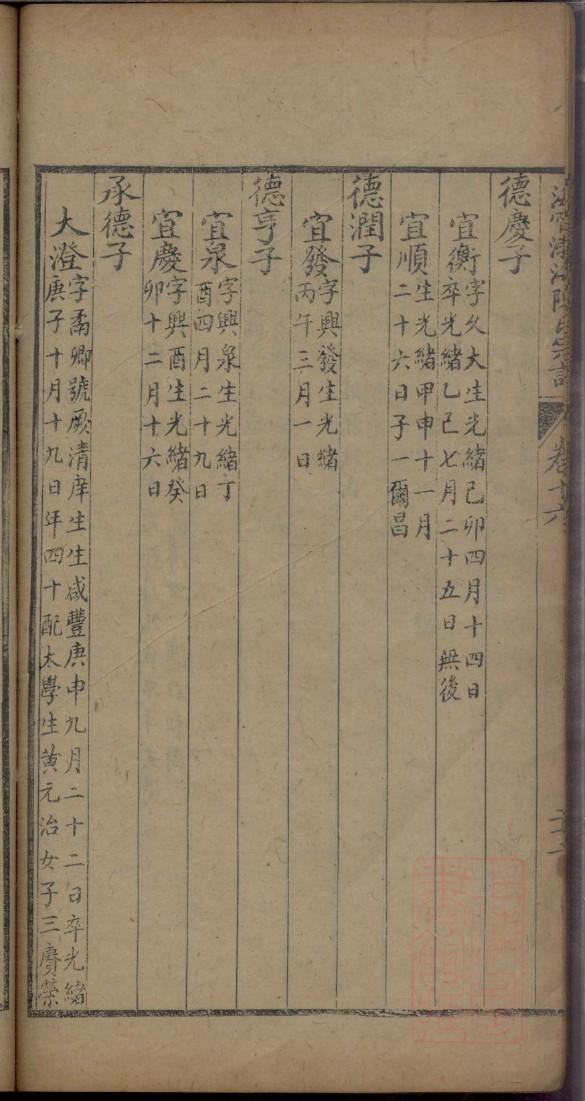 海寧渤海陳氏宗譜
卷十六
德慶子
宜衡字久大生光緒己卯四月十四日
卒光緒乙巳七月二十五日無後
宜順生光緒甲申十一月
二十六日子一爾昌
德潤子
宜發字興發生光緒
丙午三月一日
德亨子
宜泉字興泉生光緒丁
酉四月二十九日
宜慶字興酉生光緒癸
卯十二月十六日
承德子
大澄字矞卿號厥清庠生生咸豐庚申九月二十二日卒光緒
庚子十月十九日年四十配太學生黃元治女子三賡榮